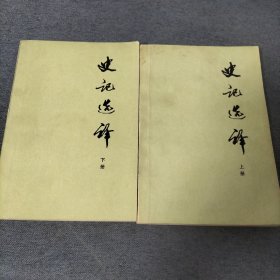 史记选译
下册
史记选译
上册